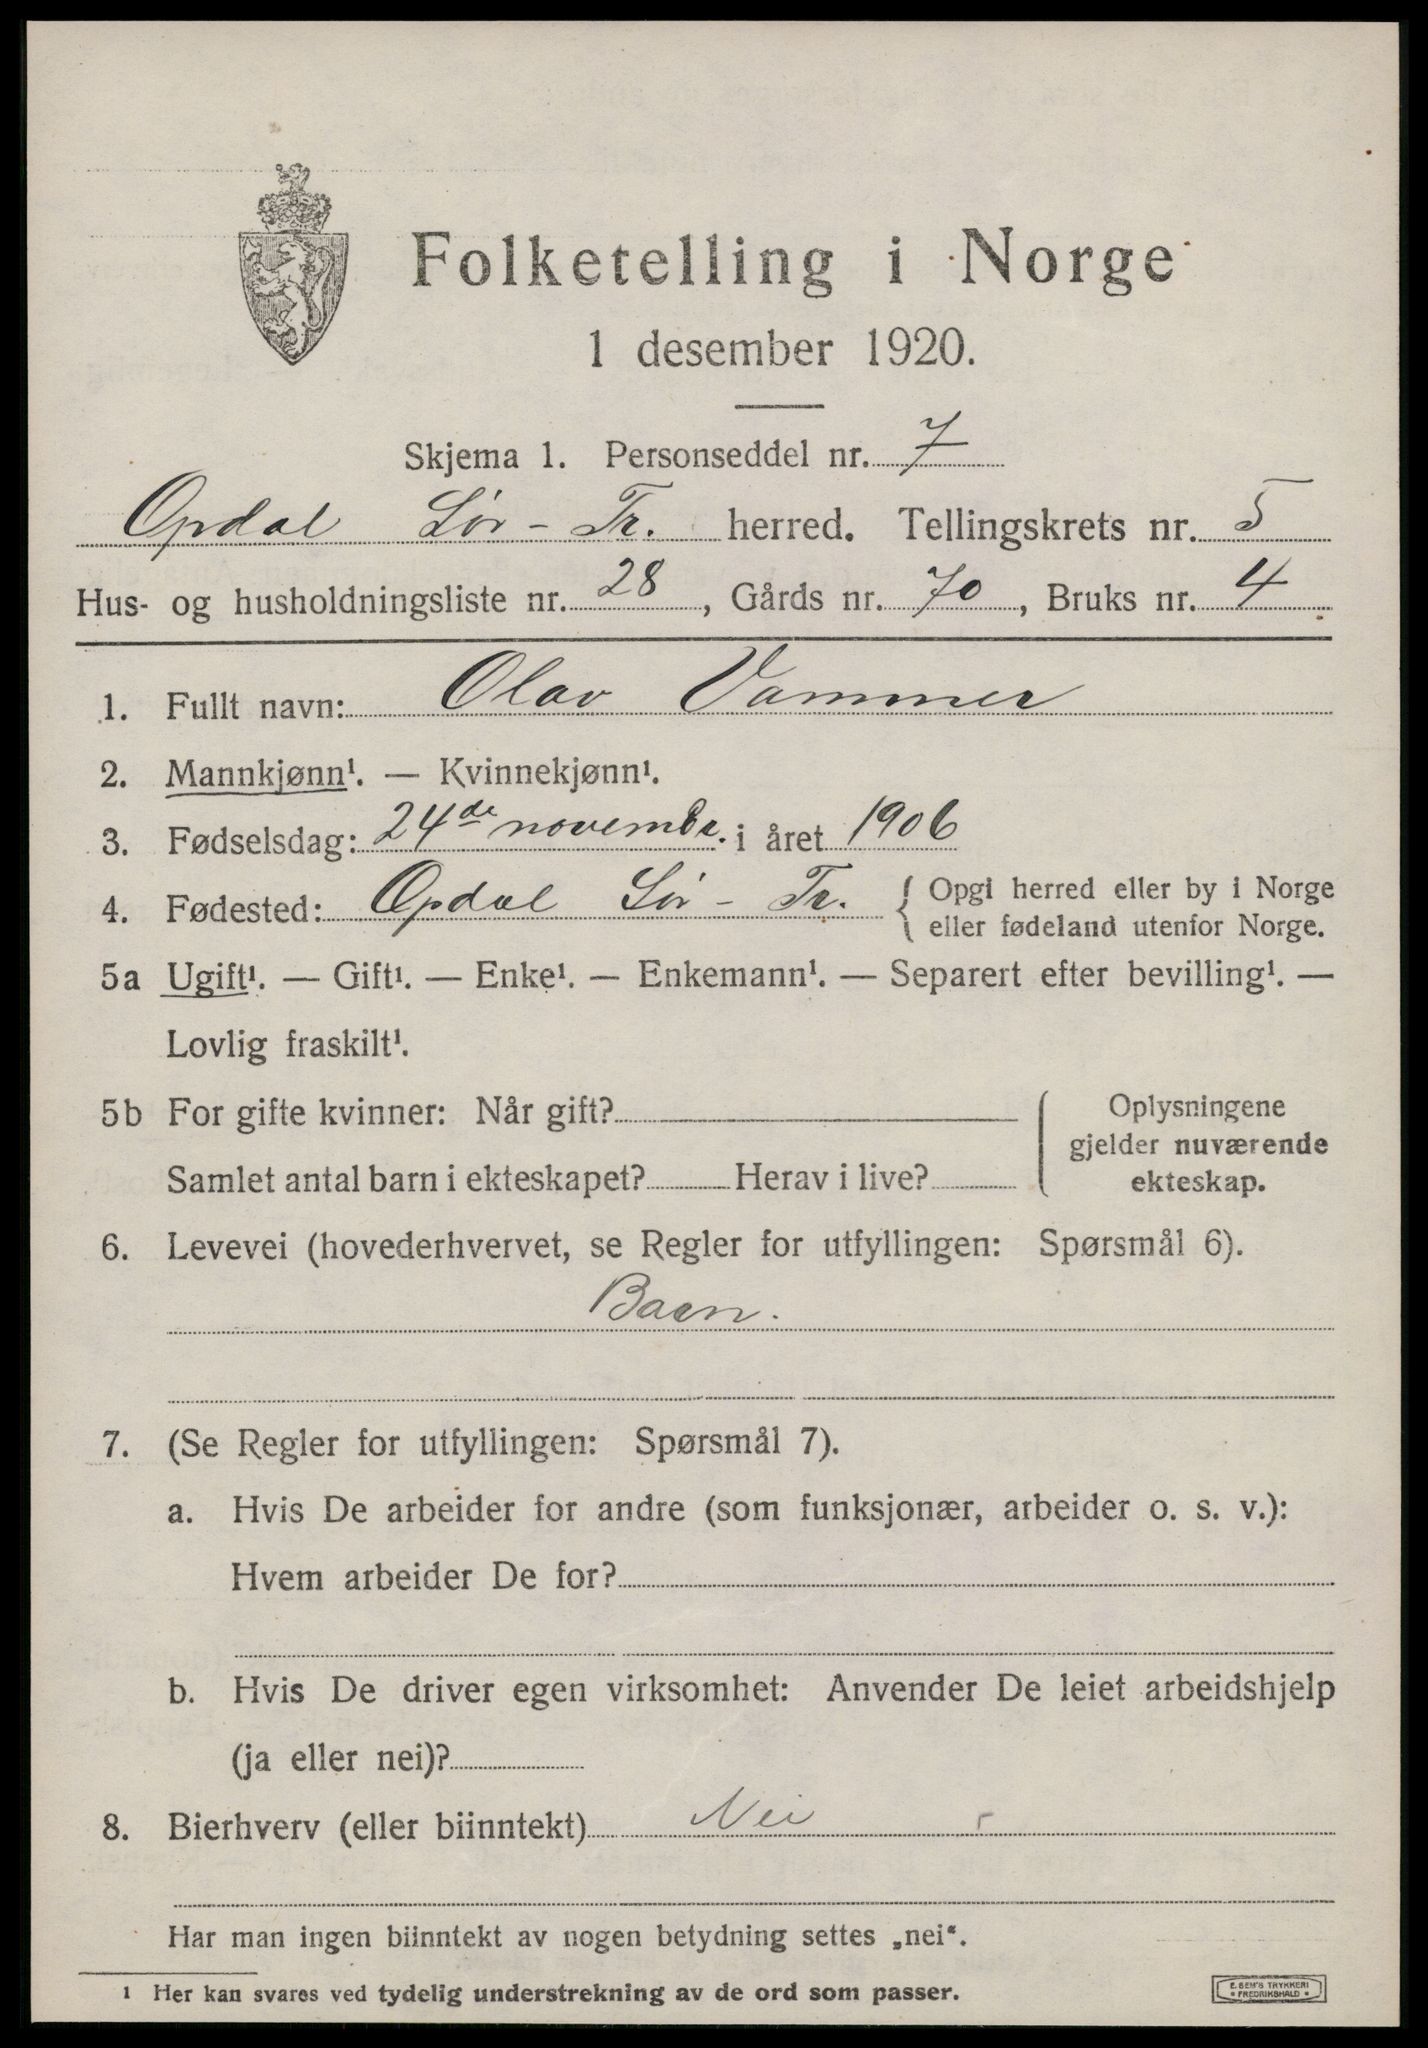 Folketelling i Norge
1 desember 1920.
Skjema 1. Personseddel nr. 7
Opdal Sör - Tr. herred. Tellingskrets nr. 5
Hus- og husholdningsliste nr. 28, Gårds nr. 70, Bruks nr. 4
1. Fullt navn: Olav Vammer
2. Mannkjønn¹. — Kvinnekjønn¹.
3. Fødselsdag: 24de novembr. i året 1906
4. Fødested: Opdal Sör - Tr. { Opgi herred eller by i Norge
eller fødeland utenfor Norge.
5a Ugift¹. — Gift¹. — Enke¹. — Enkemann¹. — Separert efter bevilling¹. —
Lovlig fraskilt¹.
5b For gifte kvinner: Når gift?
Samlet antal barn i ekteskapet? Herav i live?
Oplysningene
gjelder nuværende
ekteskap.
6. Levevei (hovederhvervet, se Regler for utfyllingen: Spørsmål 6).
Barn.
7. (Se Regler for utfyllingen: Spørsmål 7).
a. Hvis De arbeider for andre (som funksjonær, arbeider o. s. v.):
Hvem arbeider De for?
b. Hvis De driver egen virksomhet: Anvender De leiet arbeidshjelp
(ja eller nei)?
8. Bierhverv (eller biinntekt) Nei
Har man ingen biinntekt av nogen betydning settes „nei“.
¹ Her kan svares ved tydelig understrekning av de ord som passer.
E. SEM'S TRYKKERI
* FREDRIKSHALD *